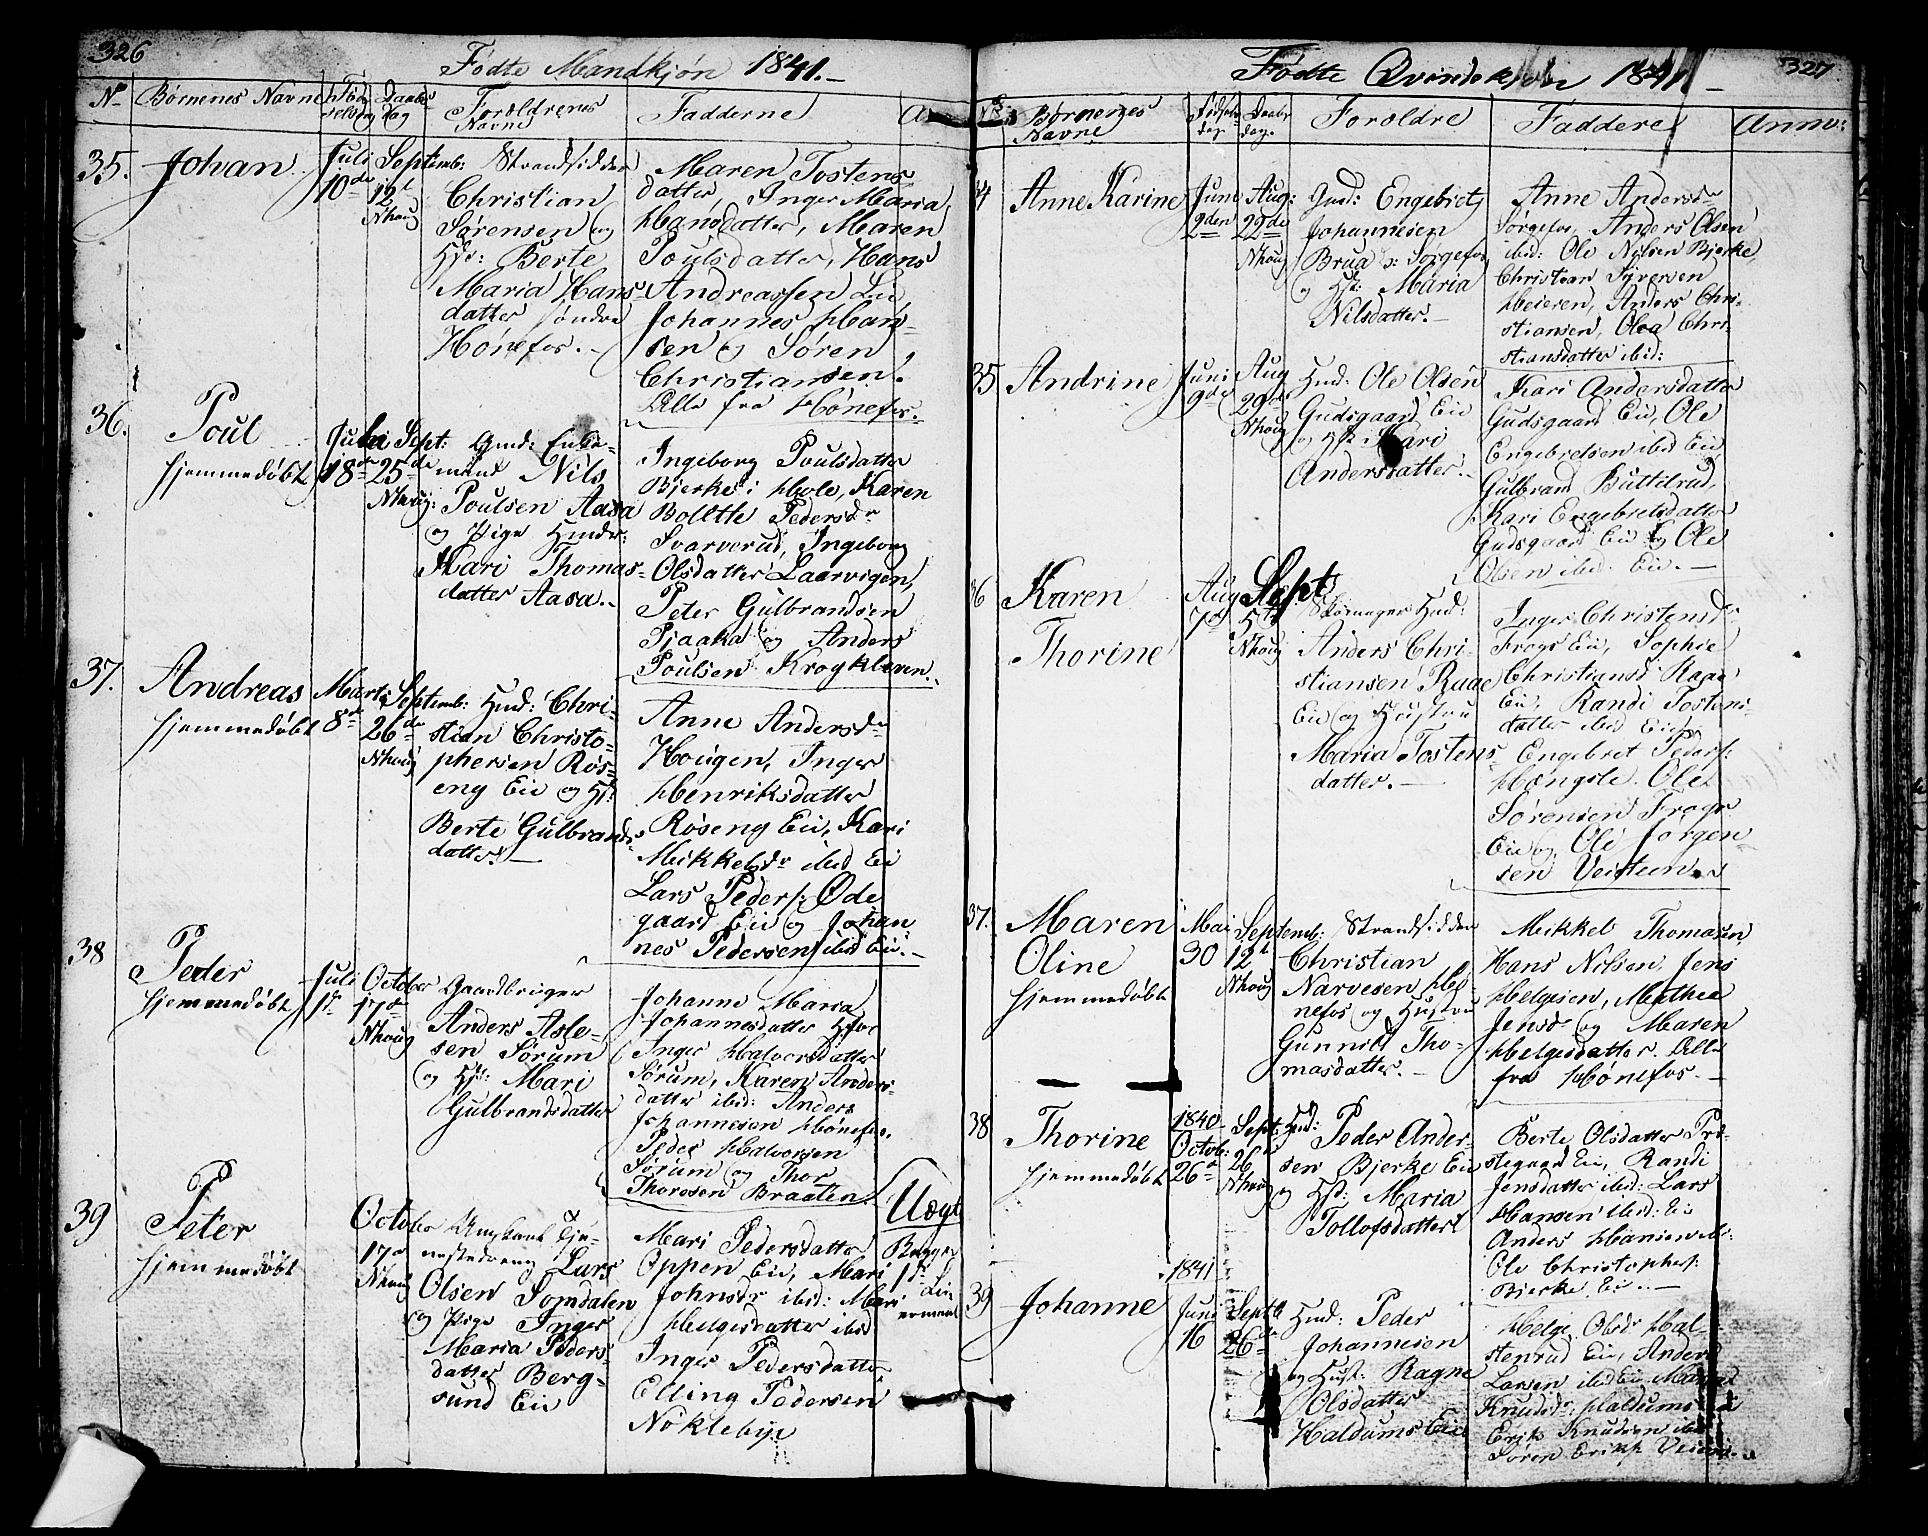 326
Födte Mandkjön 1841.
No Børnenes Navne Fød selsdag Daabs Dag Forældrenes Navne Fadderne
35. Johan
Juli 10de
Septemb: 12te Nhoug
Strandsidder
Christian
Sørensen og
Hst: Berte
Maria Hans-
datter søndre
Hønefos.
Maren Tostens
datter, Inger Maria
Hansdatter, Maren
Poulsdatter, Hans
Andreassen
Johannes Han-
sen og Søren
Christiansen.
Alle fra Hønefos.
36. Poul
hjemmedøbt
Juli 18de
Sept: 25de Nhoug:
Gmd: Enke-
mand Nils
Poulsen Aasa
og Pige
Kari Thomas-
datter Aasa.
Ingeborg Poulsdatter
Bjerke i Hole, Karen
Bolette Pedersdr
Svarverud, Ingeborg
Olsdatter Laarvigen,
Peter Gulbrandsen
Pjaaka og Anders
Poulsen Krogkleven.
37. Andreas
hjemmedøbt
Marts 8de
Septemb: 26de Nhoug
Hmd: Chri-
stian Christo-
phersen Røs-
eng Eie og Hst:
Berte Gulbrands
datter.
Anne Andersdr
Hougen, Inger
Henriksdatter
Røseng Eie, Kari
Mikkelsdr ibid Eie
Lars Peders: Øde
gaard Eie og Johan
nes Pedersen ibid Eie.
38 Peder
hjemmedøbt
Juli 1ste
October 17de Nhoug
Gaardbruger
Anders Asle-
sen Sørum
og Hst: Mari
Gulbrandsdatter
Johanne Maria
Johannesdatter Hfos
Inger Halvorsdatter
Sørum, Karen Anders-
datter ibid: Anders
Johannesen Hønefos.
Peder Halvorsen
Sørum og Thor
Thoresen Braaten
39 Peter
hjemmedøbt
October 17de Nhoug
Ungkarl Tje-
nestedreng Lars
Olsen Somdalen
og Pige Inger
Maria Peders-
datter Berg-
sund Eie
Mari Pedersdatter
Oppen Eie, Mari
Johnsdr ibid: Mari
Helgesdatter ibid
Inger Pedersdatter
Elling Pedersen
Nökleby
Uægte
Begges
1ste Lei
ermaal
327
Födte Qvindekjön 1841.
No Børnenes Navne Fødsels dag Daabs dag. Forældre Faddere Anmr:
34 Anne Karine
Juni 2den
Aug: 22de Nhoug
Gmd: Engebret
Johannesen
Brua v: Sørgefos
og Hst: Maria
Nilsdatter.
Anne Andersdr
Sørgefos, Anders Olsen
ibid: Ole Nilsen Bjerke,
Christian Syversen
Heieren, Anders Chri-
stiansen, Olea Chri-
stiansdatter ibid:
35 Andrine
Juni 9de
Aug 29de Nhoug
Hmd: Ole Olsen
Gudsgaard Eie
og Hst Mari
Andersdatter.
Kari Andersdatter
Gudsgaard Eie, Ole
Engebretsen ibid Eie
Gulbrand Buttelrud,
Kari Engebretsdatter
Gudsgaard Eie og Ole
Olsen ibid: Eie.
36 Karen
Thorine
Aug 7de
Sept 5te Nhoug
Skomager Hmd:
Anders Chri-
stiansen Raae
Eie og Hustru
Maria Tostens
datter.
Inger Christensdr
Frogs Eie, Sophie
Christiansd Raae
Eie, Randi Tostens-
datter ibid Eie,
Engebret Peders:
Hongsle. Ole
Sørensen Frogs
Eie og Ole Jørgen-
sen Veisteen.
37. Maren
Oline
hjemmedøbt
Mai 30
Septemb: 12te Nhoug
Strandsidder
Christian
Narvesen Hø-
nefos og Hustru
Gunnild Tho-
masdatter.
Mikkel Thomasen
Hans Nilsen, Jens
Helgesen, Mathea
Jensdr og Maren
Helgesdatter. Alle
fra Hønefos.
38 Thorine
hjemmedøbt
1840 Octob: 26de
Sept: 26de Nhoug
Hmd: Peder Ander-
sen Bjerke Eie
og Hst: Maria
Tollofsdatter
Berte Olsdatter Præ-
stegaard Eie, Randi
Jensdatter ibid: Lars
Hansen ibid: Eie
Anders Hansen ibid:
Ole Christophers:
Bjerke Eie.
39 Johanne
1841 Juni 16
Septb 26de
Hmd: Peder
Johannesen
og Hust: Ragne
Olsdatter
Haldums Eie
Helge Olsdr Hal-
stenrud Eie, Anders
Larsen ibid Eie,
Knudsdr Haldums
Erik Knudsen ibid
Søren Eriks: